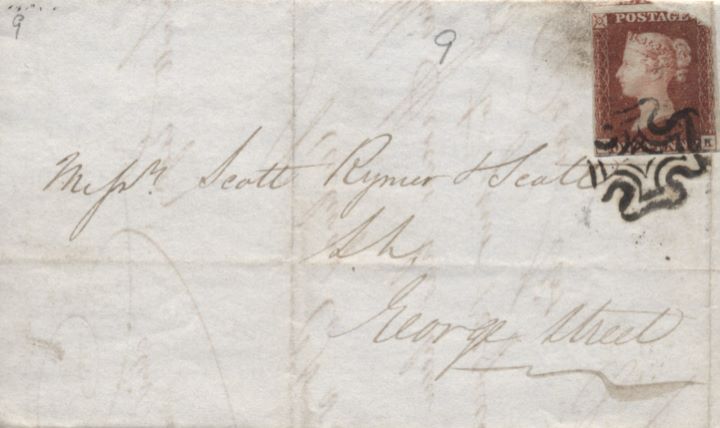 9
9
POSTAGE
R
Messrs Scott Rymer & Scott
George Street